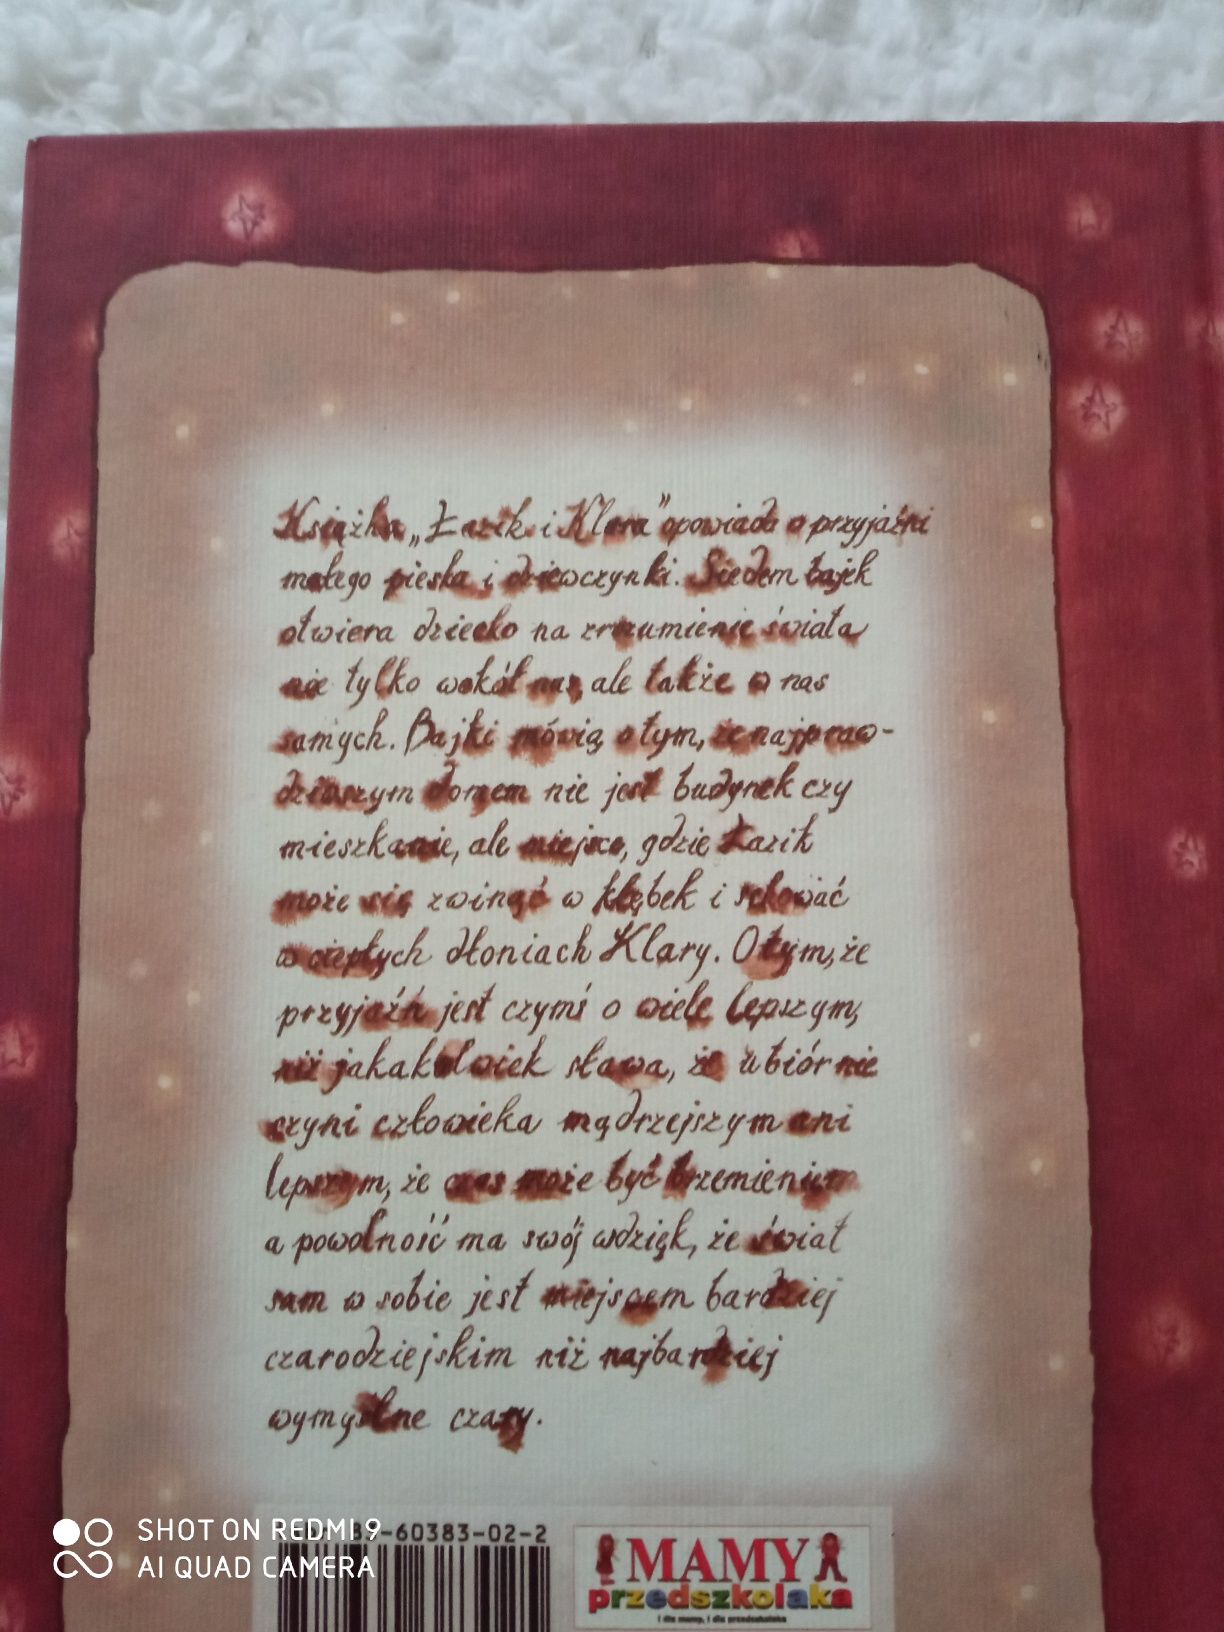 Książka „Łazik i Klara” opowiada o przyjaźni
małego pieska i dziewczynki. Siedem bajek
otwiera dziecko na zrozumienie świata
nie tylko wokół nas, ale także o nas
samych. Bajki mówią o tym, że najpraw-
dziwszym domem nie jest budynek czy
mieszkanie, ale miejsce, gdzie Łazik
może się zwinąć w kłębek i schować
w ciepłych dłoniach Klary. O tym, że
przyjaźń jest czymś o wiele lepszym,
niż jakakolwiek sława, że ubiór nie
czyni człowieka mądrzejszym ani
lepszym, że czas może być brzemieniem
a powolność ma swój wdzięk, że świat
sam w sobie jest miejscem bardziej
czarodziejskim niż najbardziej
wymyślne czary.
-60383-02-2
MAMY
przedszkolaka
i dla mamy, i dla przedszkolaka
SHOT ON REDMI 9
AI QUAD CAMERA